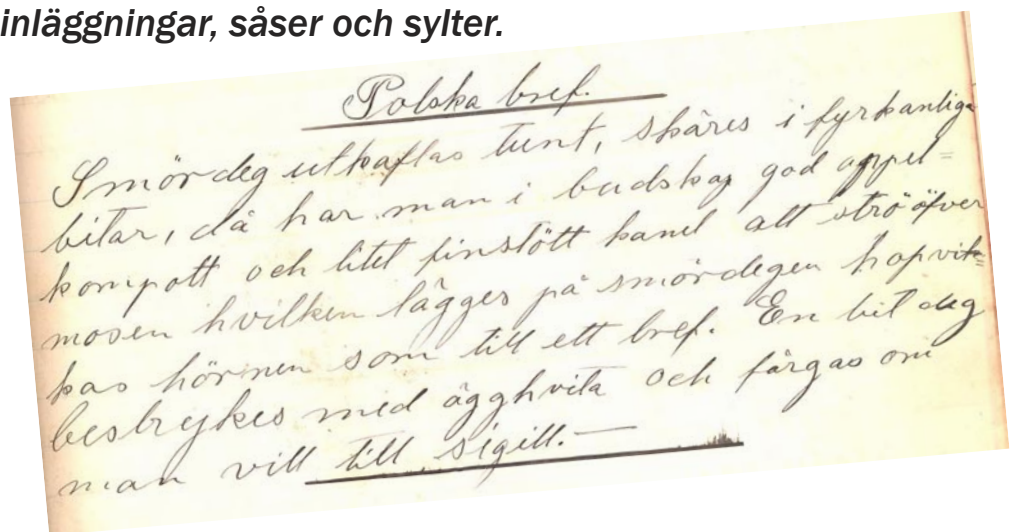 inläggningar, såser och sylter.
Polska bref.
Smördeg utkaflas tunt, skäres i fyrkantiga
bitar, då har man i budskap god äppel=
kompott och litet finstött kanel att strö öfver
mosen hvilken lägges på smördegen hopvik=
kas hörnen som till ett bref. En bit deg
bestrykes med ägghvita och färgas om
man vill till sigill.—